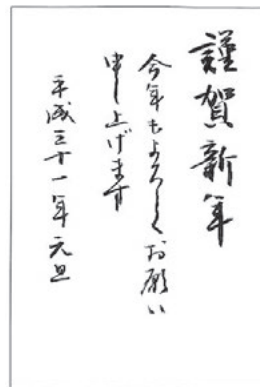 謹賀新年
今年もよろしくお願い
申し上げます
平成三十一年元旦